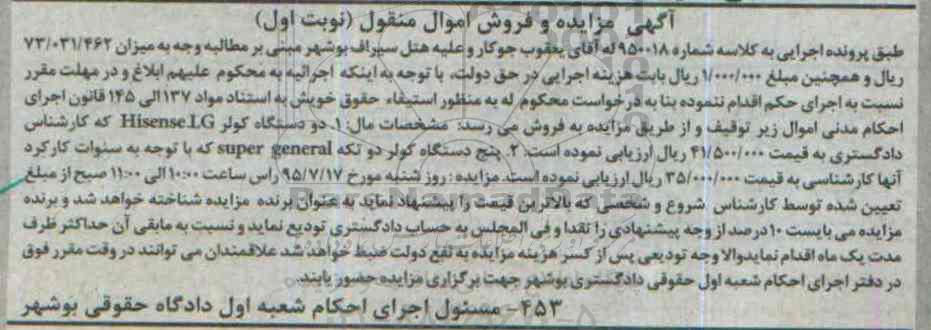 آگهی مزایده و فروش اموال منقول (نوبت اول)
طبق پرونده اجرایی به کلاسه شماره ۹۵۰۰۱۸ له آقای یعقوب جوکار و علیه هتل سیراف بوشهر مبنی بر مطالبه وجه به میزان ۷۳/۰۳۱/۴۶۲
ریال و همچنین مبلغ ۱/۰۰۰/۰۰۰ ریال بابت هزینه اجرایی در حق دولت، با توجه به اینکه اجرائیه به محکوم علیهم ابلاغ و در مهلت مقرر
نسبت به اجرای حکم اقدام ننموده بنا به درخواست محکوم له به منظور استیفاء حقوق خویش به استناد مواد ۱۳۷ الی ۱۴۵ قانون اجرای
احکام مدنی اموال زیر توقیف و از طریق مزایده به فروش می رسد: مشخصات مال: ۱. دو دستگاه کولر Hisense.LG که کارشناس
دادگستری به قیمت ۴۱/۵۰۰/۰۰۰ ریال ارزیابی نموده است. ۲. پنج دستگاه کولر دو تکه super general که با توجه به سنوات کارکرد
آنها کارشناسی به قیمت ۳۵/۰۰۰/۰۰۰ ریال ارزیابی نموده است. مزایده : روز شنبه مورخ ۹۵/۷/۱۷ راس ساعت ۱۰:۰۰ الی ۱۱:۰۰ صبح از مبلغ
تعیین شده توسط کارشناس شروع و شخصی که بالاترین قیمت را پیشنهاد نماید به عنوان برنده مزایده شناخته خواهد شد و برنده
مزایده می بایست ۱۰ درصد از وجه پیشنهادی را نقدا و فی المجلس به حساب دادگستری تودیع نماید و نسبت به مابقی آن حداکثر ظرف
مدت یک ماه اقدام نماید والا وجه تودیعی پس از کسر هزینه مزایده به نفع دولت ضبط خواهد شد علاقمندان می توانند در وقت مقرر فوق
در دفتر اجرای احکام شعبه اول حقوقی دادگستری بوشهر جهت برگزاری مزایده حضور یابند.
۴۵۳- مسئول اجرای احکام شعبه اول دادگاه حقوقی بوشهر